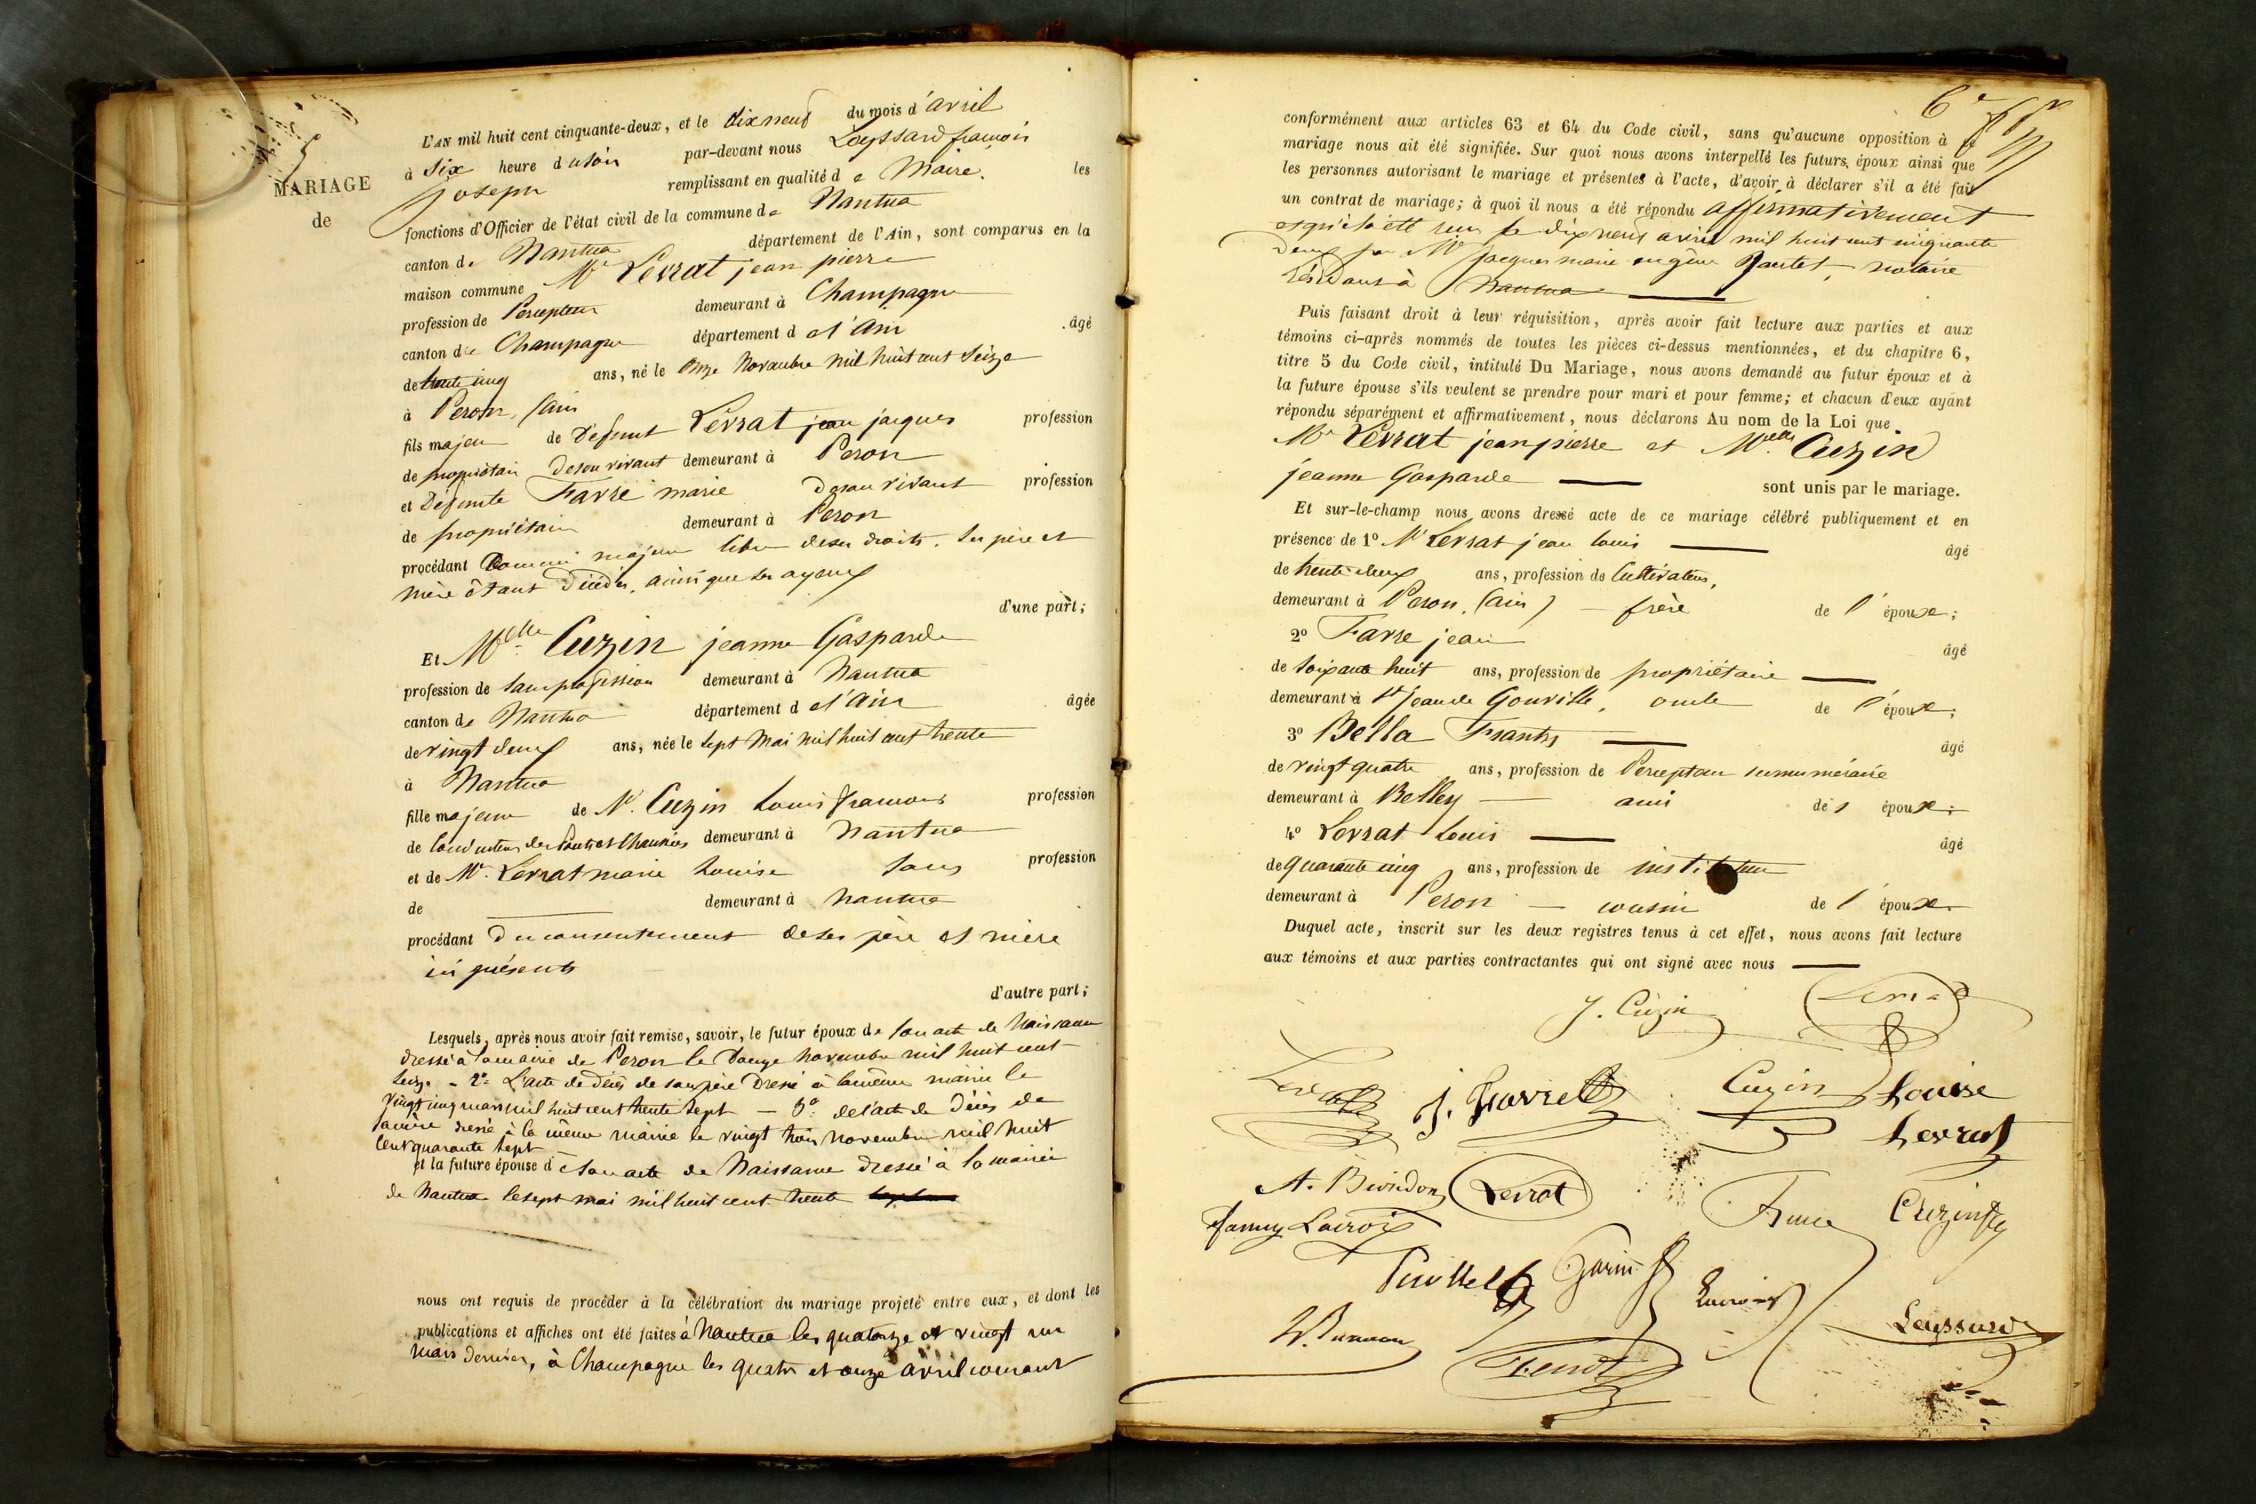 MARIAGE
de
L'AN mil huit cent cinquante-deux, et le dix neuf du mois d'avril
à six heure du soir par-devant nous Leyssard françois
joseph remplissant en qualité de Maire. les
fonctions d'Officier de l'état civil de la commune de Nantua
canton de Nantua département de l'Ain, sont comparus en la
maison commune Mr Levrat jean pierre
profession de Percepteur demeurant à Champagne
canton de Champagne département de l'Ain âgé
de trente cinq ans, né le onze Novembre mil huit cent seize
à Peron, (ain
fils majeur de Defunt Levrat jean jacques profession
de propriétaire de son vivant demeurant à Peron
et Défunte Favre marie de son vivant profession
de propriétaire demeurant à Peron
procédant comme majeur libre de ses droits. ses père et
mère étant Décédés, ainsi que ses ayeux
d'une part;
Et Melle Cuzin jeanne Gasparde
profession de sans profession demeurant à Nantua
canton de Nantua département de l'Ain âgée
de vingt deux ans, née le sept Mai mil huit cent trente
à Nantua
fille majeure de Mr. Cuzin Louis francois profession
de Conducteur des Ponts et Chaussées demeurant à Nantua
et de Me. Levrat marie Louise sans profession
de demeurant à Nantua
procédant du consentement de ses père et mère
ici présents
d'autre part;
Lesquels, après nous avoir fait remise, savoir, le futur époux de son acte de Naissance
dressé à la mairie de Peron le douze novembre mil huit cent
seize - 2º L'acte de décès de son père Dressé à la même mairie le
vingt cinq mars mil huit cent trente sept - 3º de l'acte de Décès de
sa mère dressé à la même mairie le vingt trois novembre mil huit
cent quarante sept
et la future épouse de son acte de Naissance dressé à la mairie
de Nantua le sept mai mil huit cent trente
nous ont requis de procéder à la célébration du mariage projeté entre eux, et dont les
publications et affiches ont été faites à Nantua les quatorze et vingt un
mars dernier, à Champagne les quatre et onze avril courant
conformément aux articles 63 et 64 du Code civil, sans qu'aucune opposition à ce
mariage nous ait été signifiée. Sur quoi nous avons interpellé les futurs époux ainsi que
les personnes autorisant le mariage et présentes à l'acte, d'avoir à déclarer s'il a été fait
un contrat de mariage; à quoi il nous a été répondu affirmativement
et qu'il a été reçu le dix neuf avril mil huit cent cinquante
deux par Me jacques marie eugène Jantet, notaire
résidant à Nantua
Puis faisant droit à leur réquisition, après avoir fait lecture aux parties et aux
témoins ci-après nommés de toutes les pièces ci-dessus mentionnées, et du chapitre 6,
titre 5 du Code civil, intitulé Du Mariage, nous avons demandé au futur époux et à
la future épouse s'ils veulent se prendre pour mari et pour femme; et chacun d'eux ayant
répondu séparément et affirmativement, nous déclarons Au nom de la Loi que
Mr Levrat jean pierre et Melle Cuzin
jeanne Gasparde sont unis par le mariage.
Et sur-le-champ nous avons dressé acte de ce mariage célébré publiquement et en
présence de 1º Mr Levrat jean louis âgé
de trente deux ans, profession de Cultivateur,
demeurant à Peron. (ain) - frère de l'époux;
2º Favre jean âgé
de soixante huit ans, profession de propriétaire
demeurant à St jean de Gonville, oncle de l'époux;
3º Bella Frantz âgé
de vingt quatre ans, profession de Percepteur surnuméraire
demeurant à Belley - ami de l'époux;
4º Levrat Louis âgé
de quarante cinq ans, profession de instituteur
demeurant à Peron - cousin de l'époux.
Duquel acte, inscrit sur les deux registres tenus à cet effet, nous avons fait lecture
aux témoins et aux parties contractantes qui ont signé avec nous
J. Cuzin Levrat
Levrat J. Favre Cuzin Louise
Levrat
Levrat Cuzin
Fanny Lacroix
Leyssard